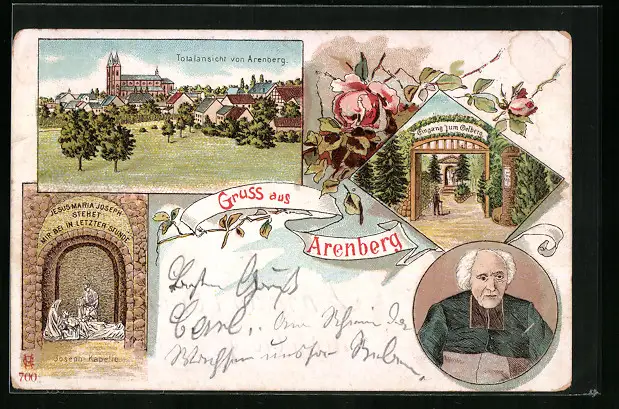 Totalansicht von Arenberg.
Eingang zum Oelberg
Gruss aus
Arenberg
JESUS MARIA JOSEPH
STEHET
MIR BEI IN LETZTER STUNDE
Joseph-Kapelle
700
Besten Gruß
Carl.